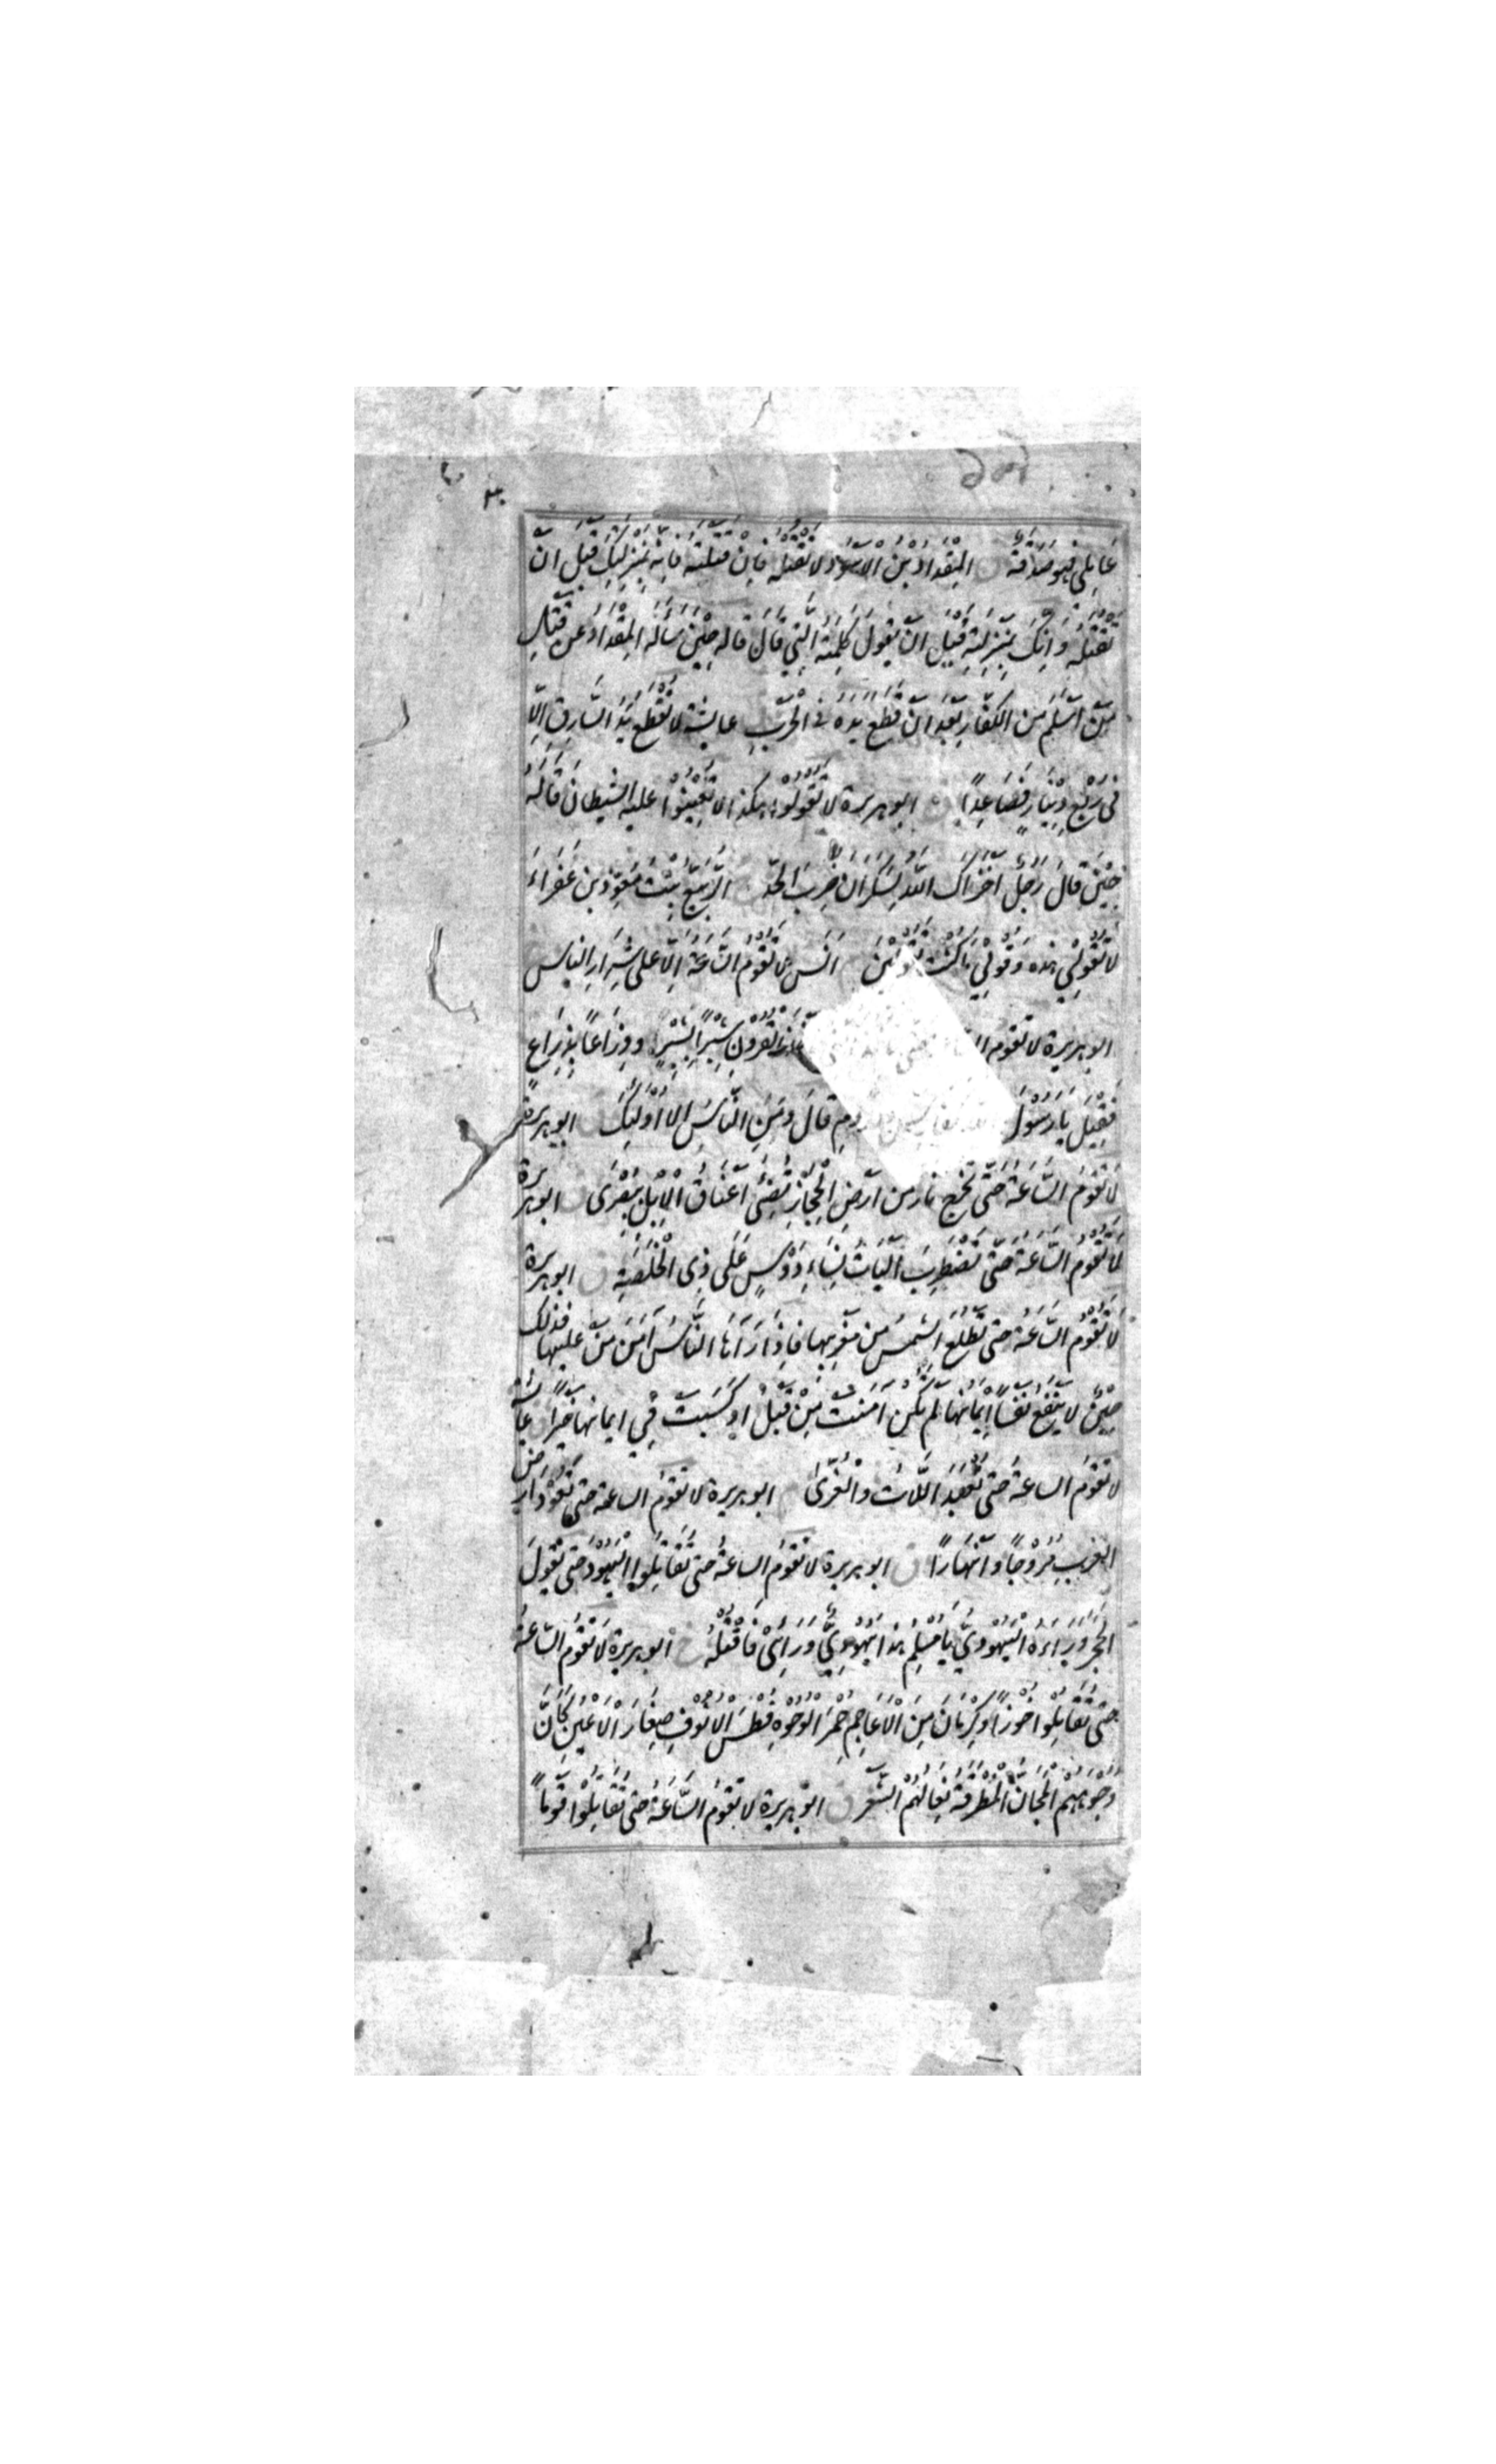 عَامِلِي فَهُوَ صَدَقَةٌ ق المِقْدَادُ بْنُ الْأَسْوَدِ لَا تَقْتُلْهُ فَإِنْ قَتَلْتَهُ فَإِنَّهُ بِمَنْزِلَتِكَ قَبْلَ أَنْ
تَقْتُلَهُ وَإِنَّكَ بِمَنْزِلَتِهِ قَبْلَ أَنْ يَقُولَ كَلِمَتَهُ الَّتِي قَالَ قاله حِيْنَ سَأَلَهُ المِقْدَادُ عن قَتْلِ
مَنْ أَسْلَمَ مِنَ الكُفَّارِ بَعْدَ أَنْ قَطَعَ يَدَهُ في الْحَرْبِ عايشة لَا تُقْطَعُ يَدُ السَّارِقِ إِلَّا
فِي رُبْعِ دِيْنَارٍ فَصَاعِدًا ق ابو هريرة لَا تَقُولُوا هكذا لا تُعِيْنُوا عليه الشيطان قَالَهُ
حِيْنَ قَالَ رَجُلٌ أَخْزَاكَ اللّٰهُ لِسَكْرَانَ ضُرِبَ الحَدَّ الرُّبَيِّعُ بِنْتُ مُعَوِّذِ بْنِ عَفْرَاءَ
لَا تَقُولِي هذه وَقُولِي مَا كُنْتِ تَقُولِيْنَ أَنَسٌ لَا تَقُومُ السَّاعَةُ إِلَّا على شِرَارِ الناس
ابو هريرة لا تَقُومُ القُرُوْنِ شِبْرًا بِشِبْرٍ وَذِرَاعًا بِذِرَاعٍ
فَقِيْلَ يَا رَسُوْلَ قَالَ وَمَنِ النَّاسُ إلا أُولٰئِكَ ابو هريرة
لَا تَقُومُ السَّاعَةُ حَتَّى تَخْرُجَ نارٌ من أَرْضِ الْحِجَازِ تُضِيْءُ أَعْنَاقَ الْإِبِلِ بِبُصْرَى ابو هريرة
لَا تَقُومُ السَّاعَةُ حَتَّى تَضْطَرِبَ أَلْيَاتُ نِسَاءِ دَوْسٍ عَلَى ذِي الْخَلَصَةِ ق ابو هريرة
لَا تَقُومُ السَّاعَةُ حتى تَطْلُعَ الشمسُ من مغربها فَإِذَا رَآهَا النَّاسُ آمَنَ مَنْ عليها فذلك
حِيْنَ لَا يَنْفَعُ نَفْسًا إِيْمَانُهَا لَمْ تَكُنْ آمَنَتْ مِنْ قَبْلُ أَوْ كَسَبَتْ فِي إيمانها خَيْرًا عايشة
لَا تَقُومُ الساعةُ حَتّى تُعْبَدَ اللَّاتُ وَالْعُزَّى ابو هريرة لَا تَقُومُ الساعة حتى تَعُوْدَ أَرْضُ
العرب مُرُوْجًا وَأَنْهَارًا ق ابو هريرة لَا تَقُومُ الساعةُ حتى تُقَاتِلُوا الْيَهُوْدَ حَتَّى يَقُولَ
الحَجَرُ وَرَاءَهُ الْيَهُوْدِيُّ يَا مُسْلِمُ هذا يَهُوْدِيٌّ وَرَائِي فَاقْتُلْهُ خ ابو هريرة لَا تَقُومُ السَّاعَةُ
حَتَّى تُقَاتِلُوا خُوْزًا وَكِرْمَانَ مِنَ الْأَعَاجِمِ حُمْرَ الْوُجُوْهِ فُطْسَ الْأُنُوْفِ صِغَارَ الْأَعْيُنِ كَأَنَّ
وُجُوْهَهُمُ الْمَجَانُّ الْمُطْرَقَةُ نِعَالُهُمُ الشَّعَرُ ق ابو هريرة لا تَقُومُ السَّاعَةُ حَتَّى تُقَاتِلُوْا قَوْمًا